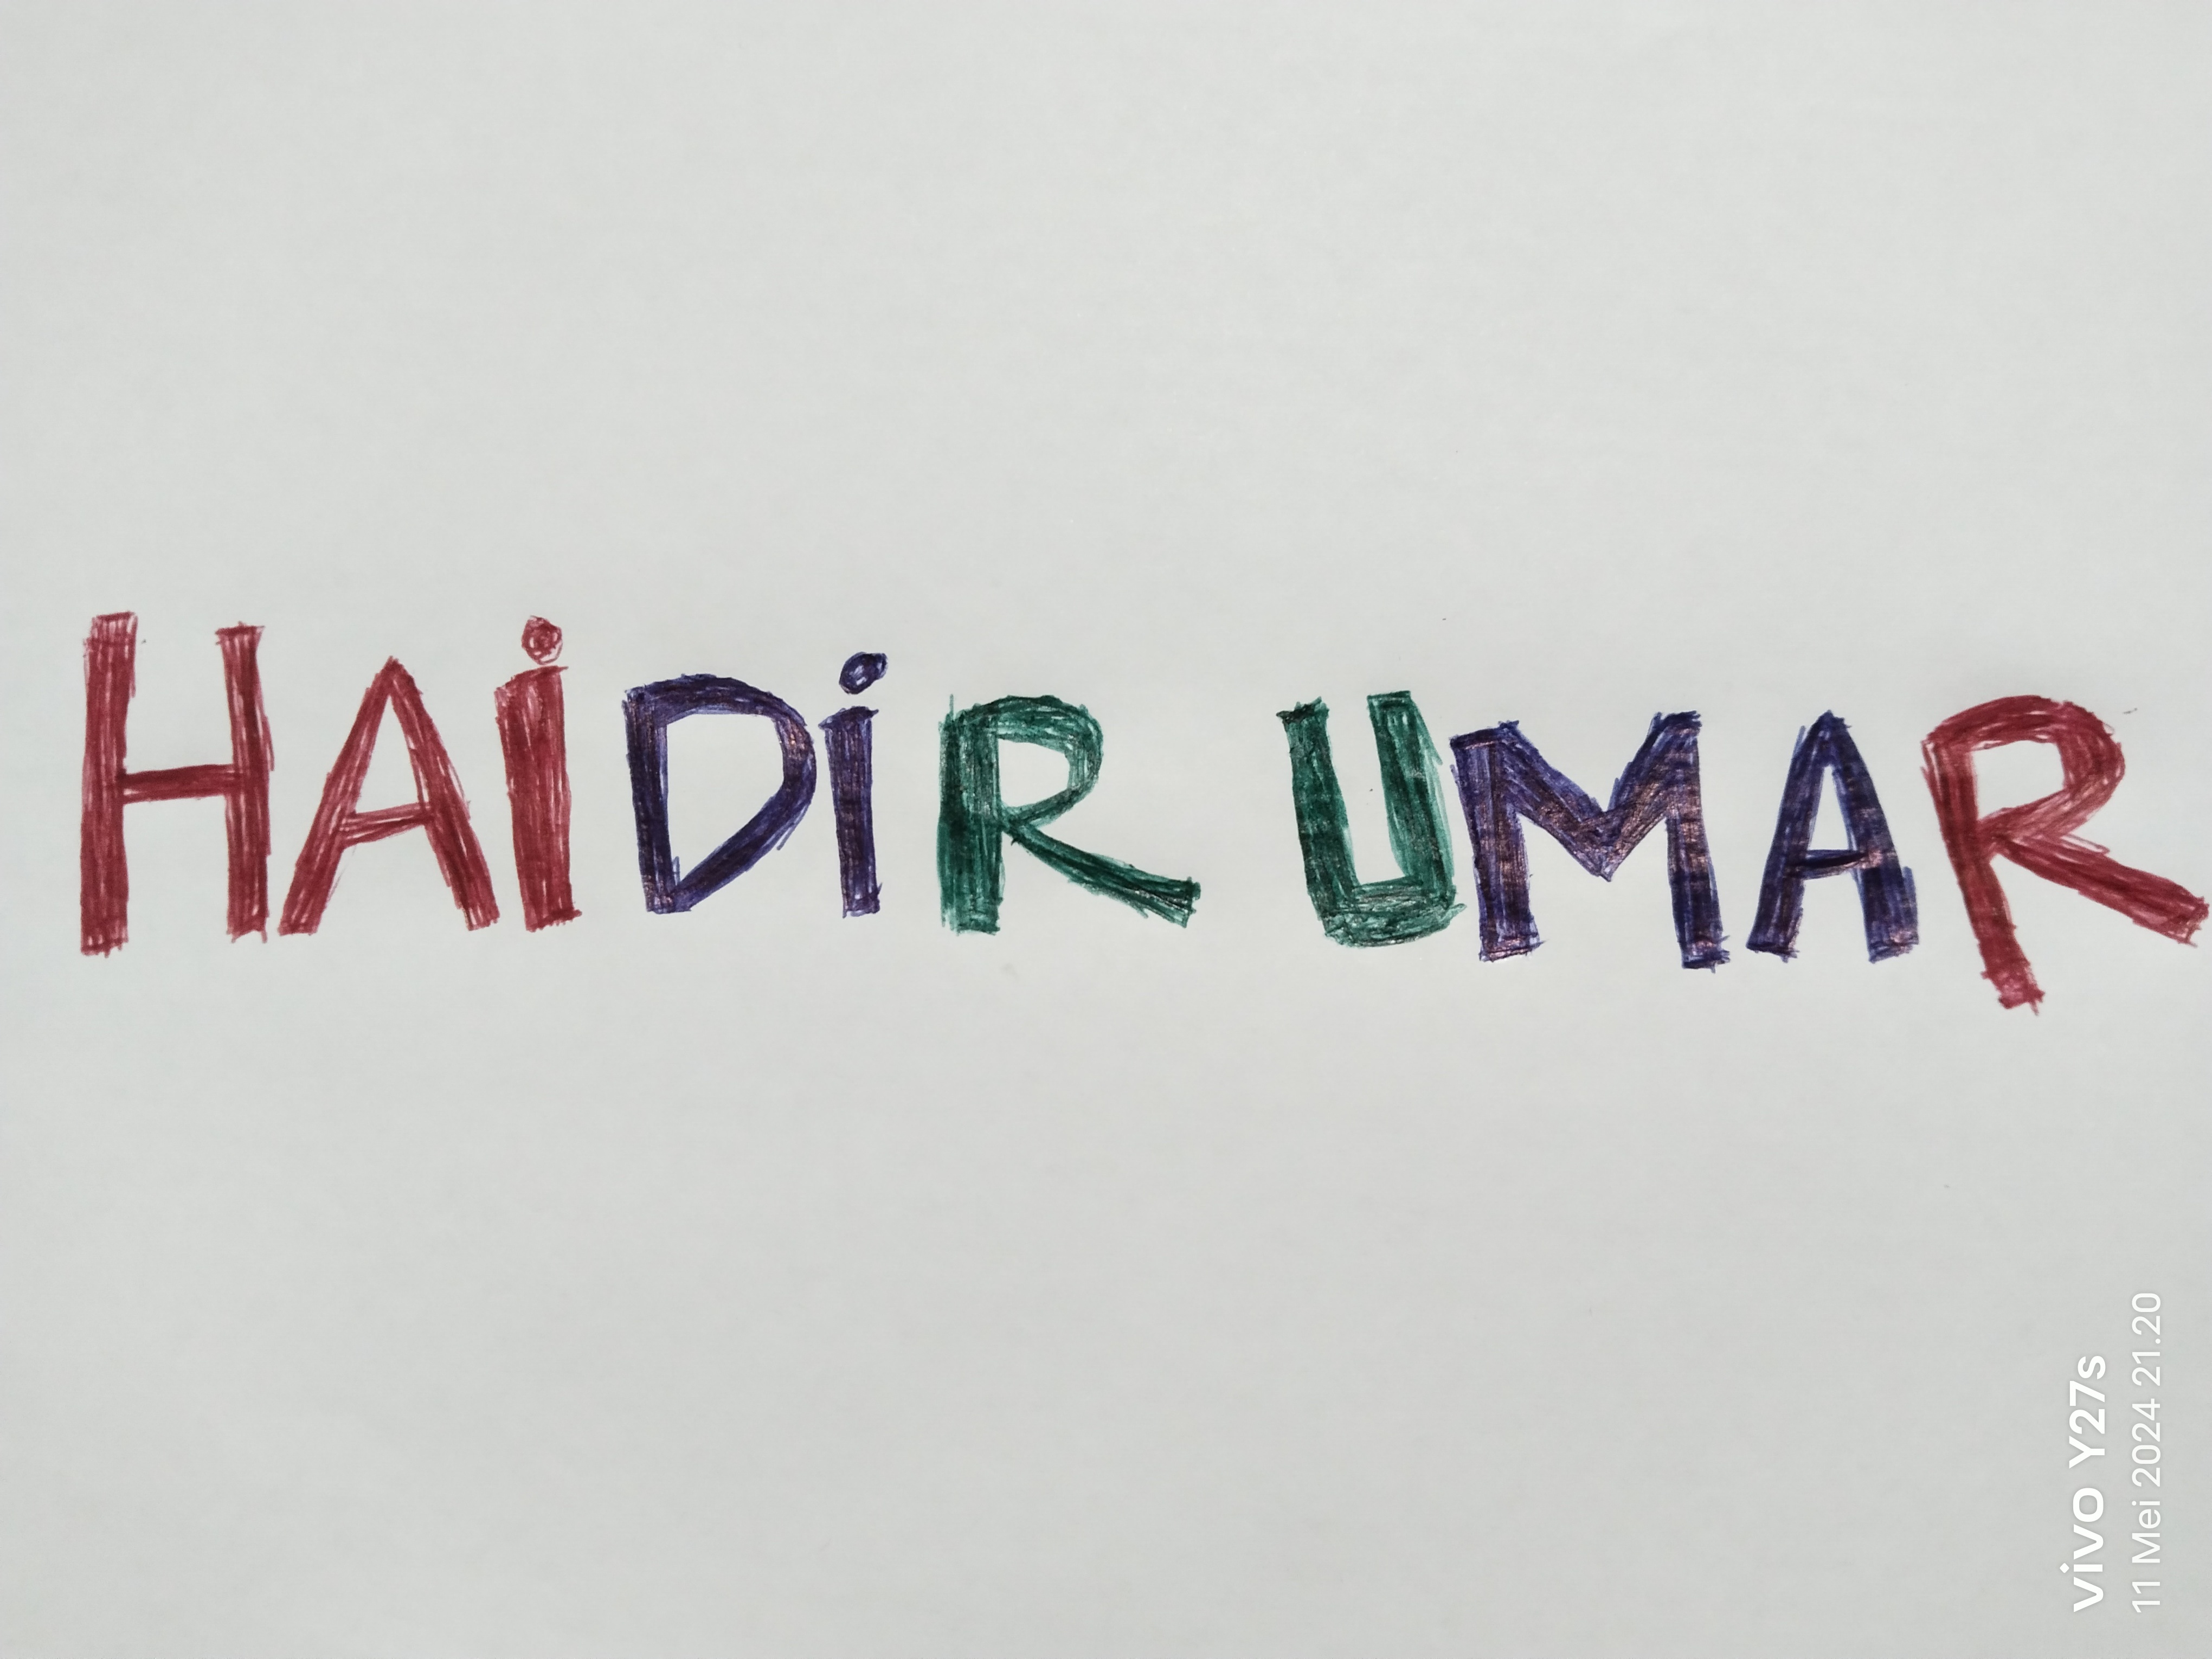 HAiDiR UMAR
vivo Y27s
11 Mei 2024 21.20